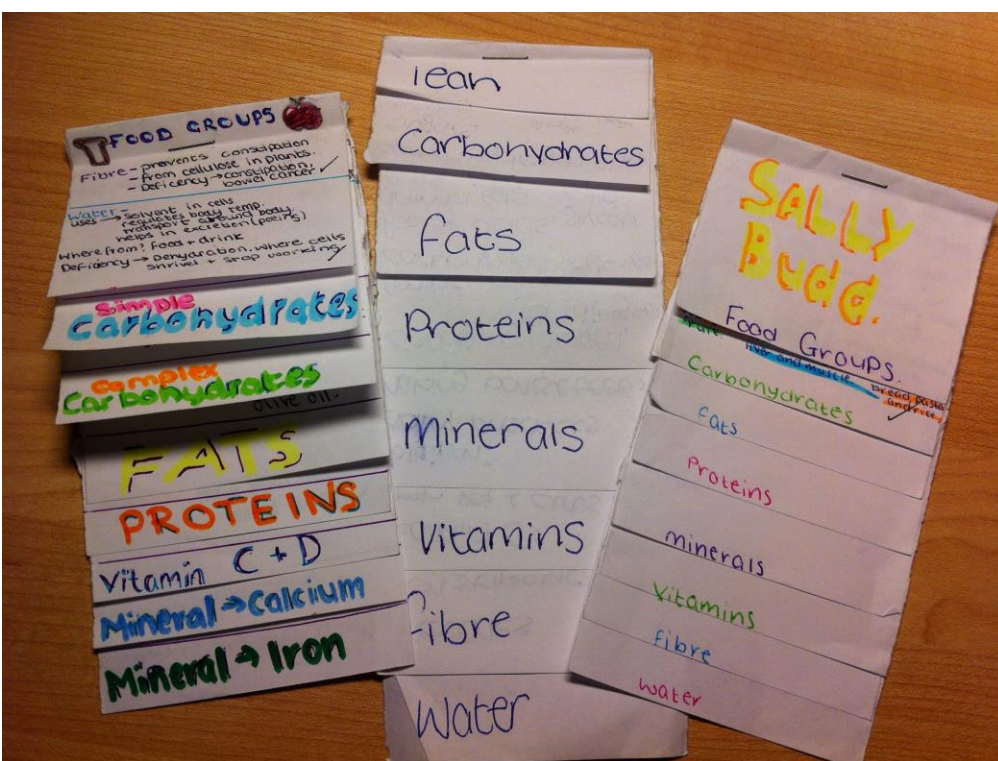 FOOD GROUPS
Fibre - prevents constipation
- from cellulose in plants.
- Deficency → constipation,
bowel cancer ✓
Water -
uses → solvent in cells
regulates body temp.
transport around body.
helps in excretion (peeing)
Where from? Food + drink
Deficiency → Dehydration. where cells
shrivel + stop working
Simple
Carbohydrates
Complex
Carbohydrates
olive oil.
FATS
PROTEINS
Vitamin C + D
Mineral → Calcium
Mineral → Iron
Carbohydrates
Fats
Proteins
Minerals
Vitamins
Fibre
Water
SALLY
Budd.
Food Groups.
liver and muscle. bread, pasta
and rice,
Carbohydrates
fats
Proteins
minerals
Vitamins
fibre
water